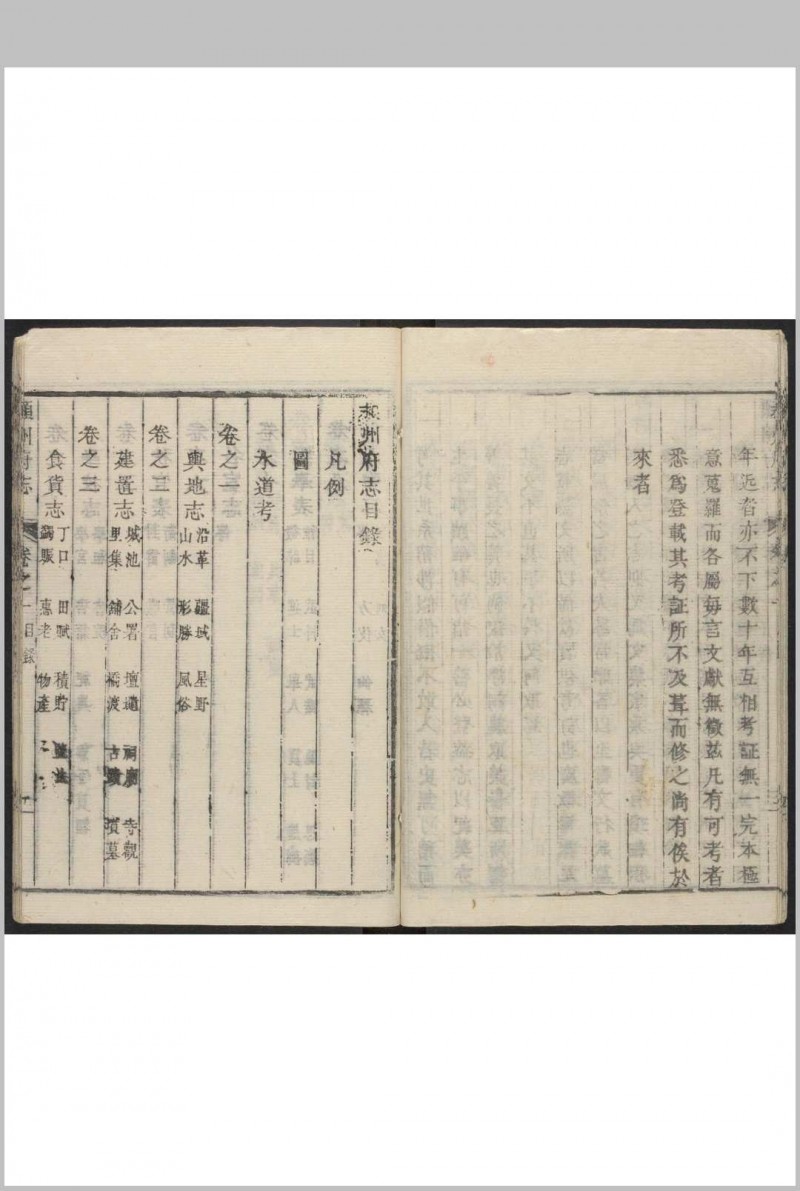 年近者亦不下數十年互相考証無一完本極
意蒐羅而各屬每言文獻無徵茲凡有可考者
悉爲登載其考証所不及葺而修之尚有俟於
來者
潁州府志目錄
凡例
圖
水道考
卷之一
輿地志 沿革 疆域 星野
山水 形勝 風俗
卷之二
建置志 城池 公署 壇壝 祠廟 寺觀
里集 鋪舍 橋渡 古蹟 墳墓
卷之三
食貨志 丁口 田賦 積貯
蠲賑 惠老 物產
潁州府志 卷之一 目錄